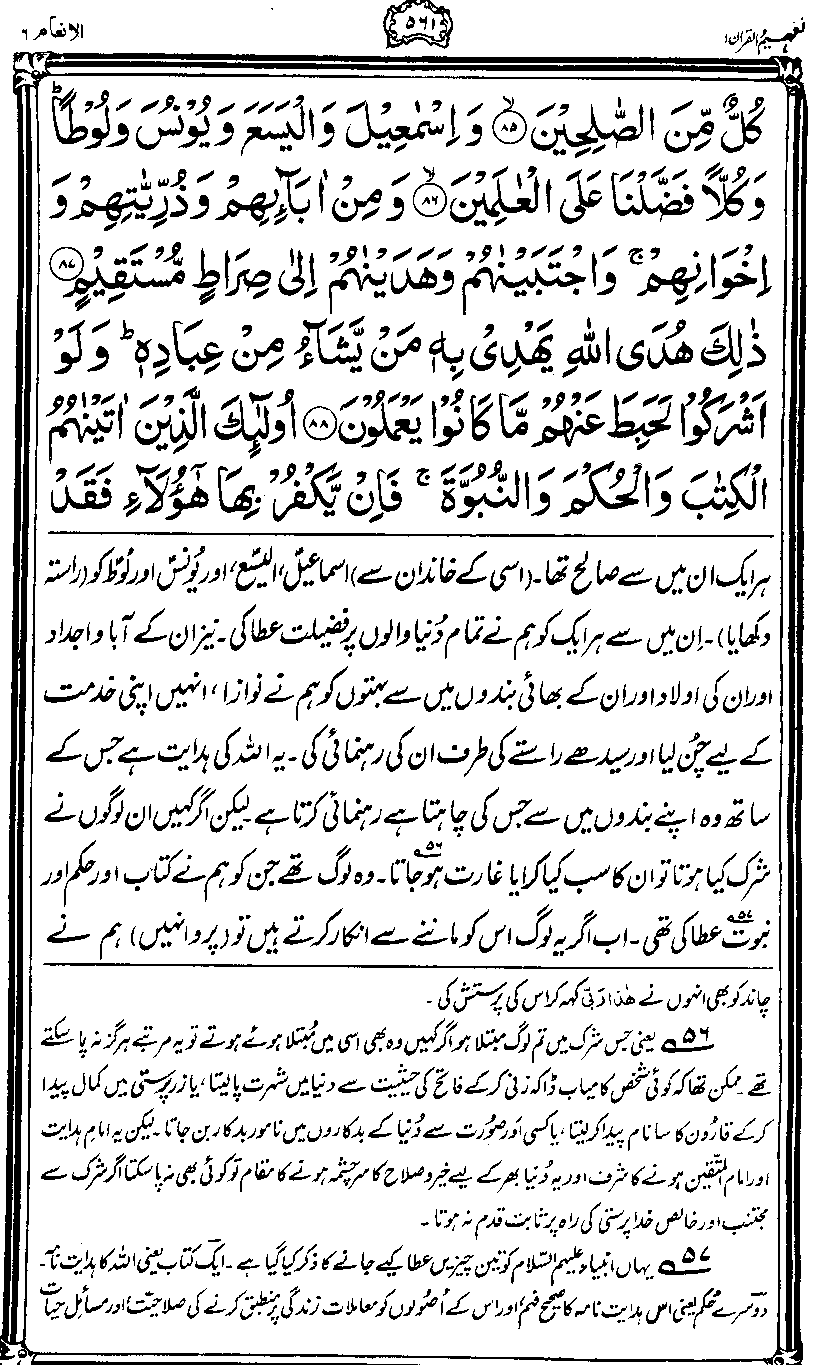 تفہیم القرآن ۱
۵۶۱
الانعام ۶
كُلٌّ مِّنَ الصّٰلِحِيْنَ ﴿۸۵﴾ وَ اِسْمٰعِيْلَ وَ الْيَسَعَ وَ يُوْنُسَ وَ لُوْطًا ؕ
وَ كُلًّا فَضَّلْنَا عَلَى الْعٰلَمِيْنَ ﴿۸۶﴾ وَ مِنْ اٰبَآىِٕهِمْ وَ ذُرِّيّٰتِهِمْ وَ
اِخْوَانِهِمْ ۚ وَ اجْتَبَيْنٰهُمْ وَ هَدَيْنٰهُمْ اِلٰى صِرَاطٍ مُّسْتَقِيْمٍ ﴿۸۷﴾
ذٰلِكَ هُدَى اللّٰهِ يَهْدِيْ بِهٖ مَنْ يَّشَآءُ مِنْ عِبَادِهٖ ؕ وَ لَوْ
اَشْرَكُوْا لَحَبِطَ عَنْهُمْ مَّا كَانُوْا يَعْمَلُوْنَ ﴿۸۸﴾ اُولٰٓىِٕكَ الَّذِيْنَ اٰتَيْنٰهُمُ
الْكِتٰبَ وَ الْحُكْمَ وَ النُّبُوَّةَ ۚ فَاِنْ يَّكْفُرْ بِهَا هٰۤؤُلَآءِ فَقَدْ
ہر ایک ان میں سے صالح تھا۔ (اسی کے خاندان سے) اسماعیلؑ، الیسعؑ، اور یونسؑ اور لوطؑ کو (راستہ
دکھایا)۔ اِن میں سے ہر ایک کو ہم نے تمام دُنیا والوں پر فضیلت عطا کی۔ نیز ان کے آبا و اجداد
اور ان کی اولاد اور ان کے بھائی بندوں میں سے بہتوں کو ہم نے نوازا، انہیں اپنی خدمت
کے لیے چُن لیا اور سیدھے راستے کی طرف ان کی رہنمائی کی۔ یہ اللہ کی ہدایت ہے جس کے
ساتھ وہ اپنے بندوں میں سے جس کی چاہتا ہے رہنمائی کرتا ہے لیکن اگر کہیں ان لوگوں نے
شرک کیا ہوتا تو ان کا سب کیا کرایا غارت ہو جاتا۵۶۔ وہ لوگ تھے جن کو ہم نے کتاب اور حکم اور
نبوت۵۷ عطا کی تھی۔ اب اگر یہ لوگ اس کو ماننے سے انکار کرتے ہیں تو (پروا نہیں) ہم نے
چاند کو بھی انہوں نے ھٰذا ربّی کہہ کر اس کی پرستش کی۔
۵۶ یعنی جس شرک میں تم لوگ مبتلا ہو اگر کہیں وہ بھی اسی میں مُبتلا ہوئے ہوتے تو یہ مرتبے ہرگز نہ پا سکتے
تھے۔ ممکن تھا کہ کوئی شخص کامیاب ڈاکہ زنی کر کے فاتح کی حیثیت سے دنیا میں شہرت پا لیتا، یا زر پرستی میں کمال پیدا
کر کے قارُون کا سا نام پیدا کر لیتا، یا کسی اَور صُورت سے دُنیا کے بدکاروں میں نامور بدکار بن جاتا۔ لیکن یہ امامِ ہدایت
اور امام المتّقین ہونے کا شرف اور یہ دُنیا بھر کے لیے خیر و صلاح کا سرچشمہ ہونے کا مقام تو کوئی بھی نہ پا سکتا اگر شرک سے
مجتنب اور خالص خدا پرستی کی راہ پر ثابت قدم نہ ہوتا۔
۵۷ یہاں انبیاء علیہم السّلام کو تین چیزیں عطا کیے جانے کا ذکر کیا گیا ہے۔ ایک کتاب یعنی اللہ کا ہدایت نامہ۔
دوسرے حکم یعنی اس ہدایت نامہ کا صحیح فہم، اور اس کے اُصُولوں کو معاملاتِ زندگی پر منطبق کرنے کی صلاحیّت، اور مسائلِ حیات